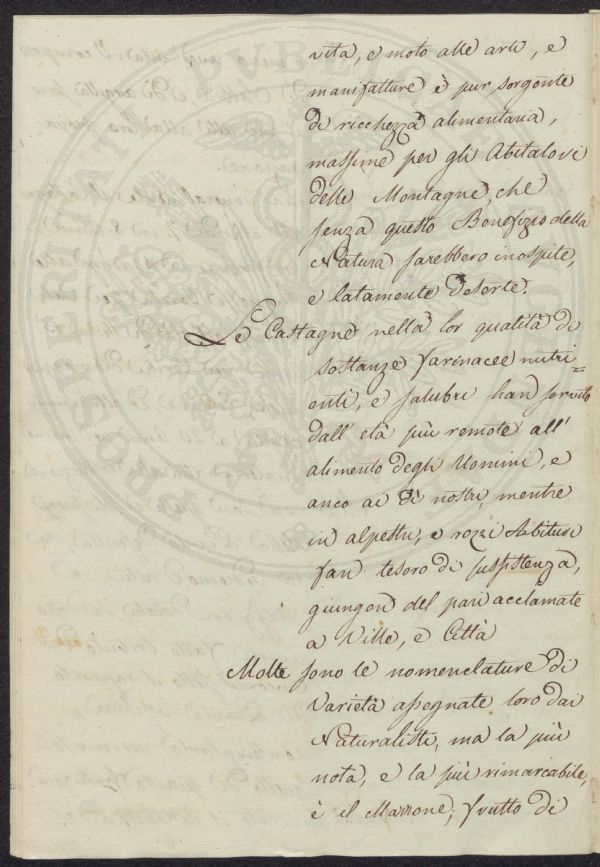 vita, e moto alle arti, e
manifatture è pur sorgente
di ricchezza alimentaria,
massime per gli Abitatori
delle Montagne, che
senza questo Benefizio della
Natura sarebbero inospite,
e latamente deserte.
Le Castagne nella lor qualità di
sostanze farinacee nutri=
enti, e salubri han servito
dall' età più remote all'
alimento degli Uomini, e
anco ai dì nostri, mentre
in alpestri, e rozzi Abituri
fan tesoro di sussistenza,
giungon del pari acclamate
a Ville, e Città
Molte sono le nomenclature di
Varietà assegnate loro dai
Naturalisti, ma la più
nota, e la più rimarcabile,
è il Marrone, frutto di